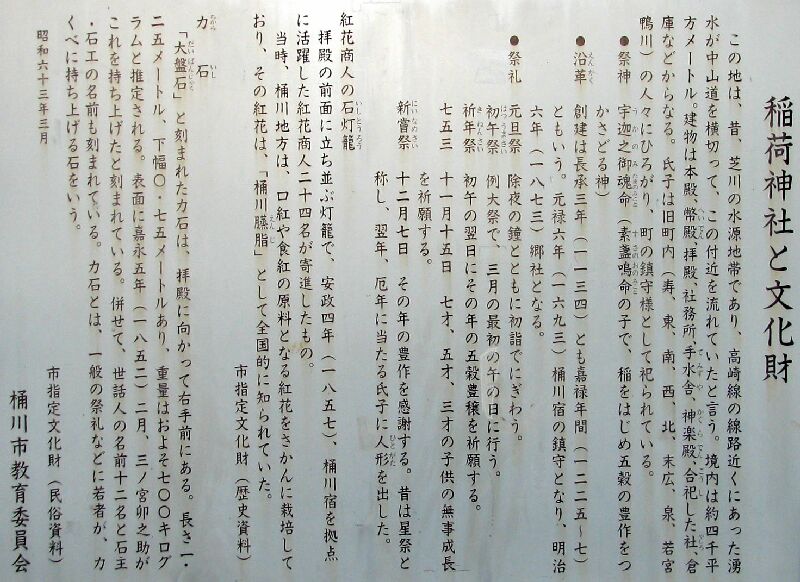 稲荷神社と文化財
この地は、昔、芝川の水源地帯であり、高崎線の線路近くにあった湧
水が中山道を横切って、この付近を流れていたと言う。境内は約四千平
方メートル。建物は本殿、幣殿、拝殿、社務所、手水舎、神楽殿、合祀した社、倉
庫などからなる。氏子は旧町内(寿 東 南 西 北、末広、泉、若宮
鴨川)の人々にひろがり、町の鎮守様として祀られている。
●祭神 宇迦之御魂命(素盞鳴命の子で、稲をはじめ五穀の豊作をつ
かさどる神)
●沿革 創建は長承三年(一一三四)とも嘉禄年間(一二二五~七)
ともいう。元禄六年(一六九三)桶川宿の鎮守となり、明治
六年(一八七三)郷社となる。
●祭礼 元旦祭 除夜の鐘とともに初詣でにぎわう。
初午祭 例大祭で、三月の最初の午の日に行う。
祈年祭 初午の翌日にその年の五穀豊穣を祈願する。
七五三 十一月十五日 七才、五才、三才の子供の無事成長
を祈願する。
新嘗祭 十二月七日 その年の豊作を感謝する。昔は星祭と
称し、翌年、厄年に当たる氏子に人形を出した。
紅花商人の石灯籠
拝殿の前面に立ち並ぶ灯籠で、安政四年(一八五七)、桶川宿を拠点
に活躍した紅花商人二十四名が寄進したもの。
当時、桶川地方は、口紅や食紅の原料となる紅花をさかんに栽培して
おり、その紅花は、「桶川臙脂」として全国的に知られていた。
市指定文化財(歴史資料)
力石
「大盤石」と刻まれた力石は、拝殿に向かって右手前にある。長さ一・
二五メートル、下幅〇・七五メートルあり、重量はおよそ七〇〇キログ
ラムと推定される。表面に嘉永五年(一八五二)二月、三ノ宮卯之助が
これを持ち上げたと刻まれている。併せて、世話人の名前十二名と石主
・石工の名前も刻まれている。力石とは、一般の祭礼などに若者が、力
くべに持ち上げる石をいう。
市指定文化財(民俗資料)
昭和六十三年三月
桶川市教育委員会